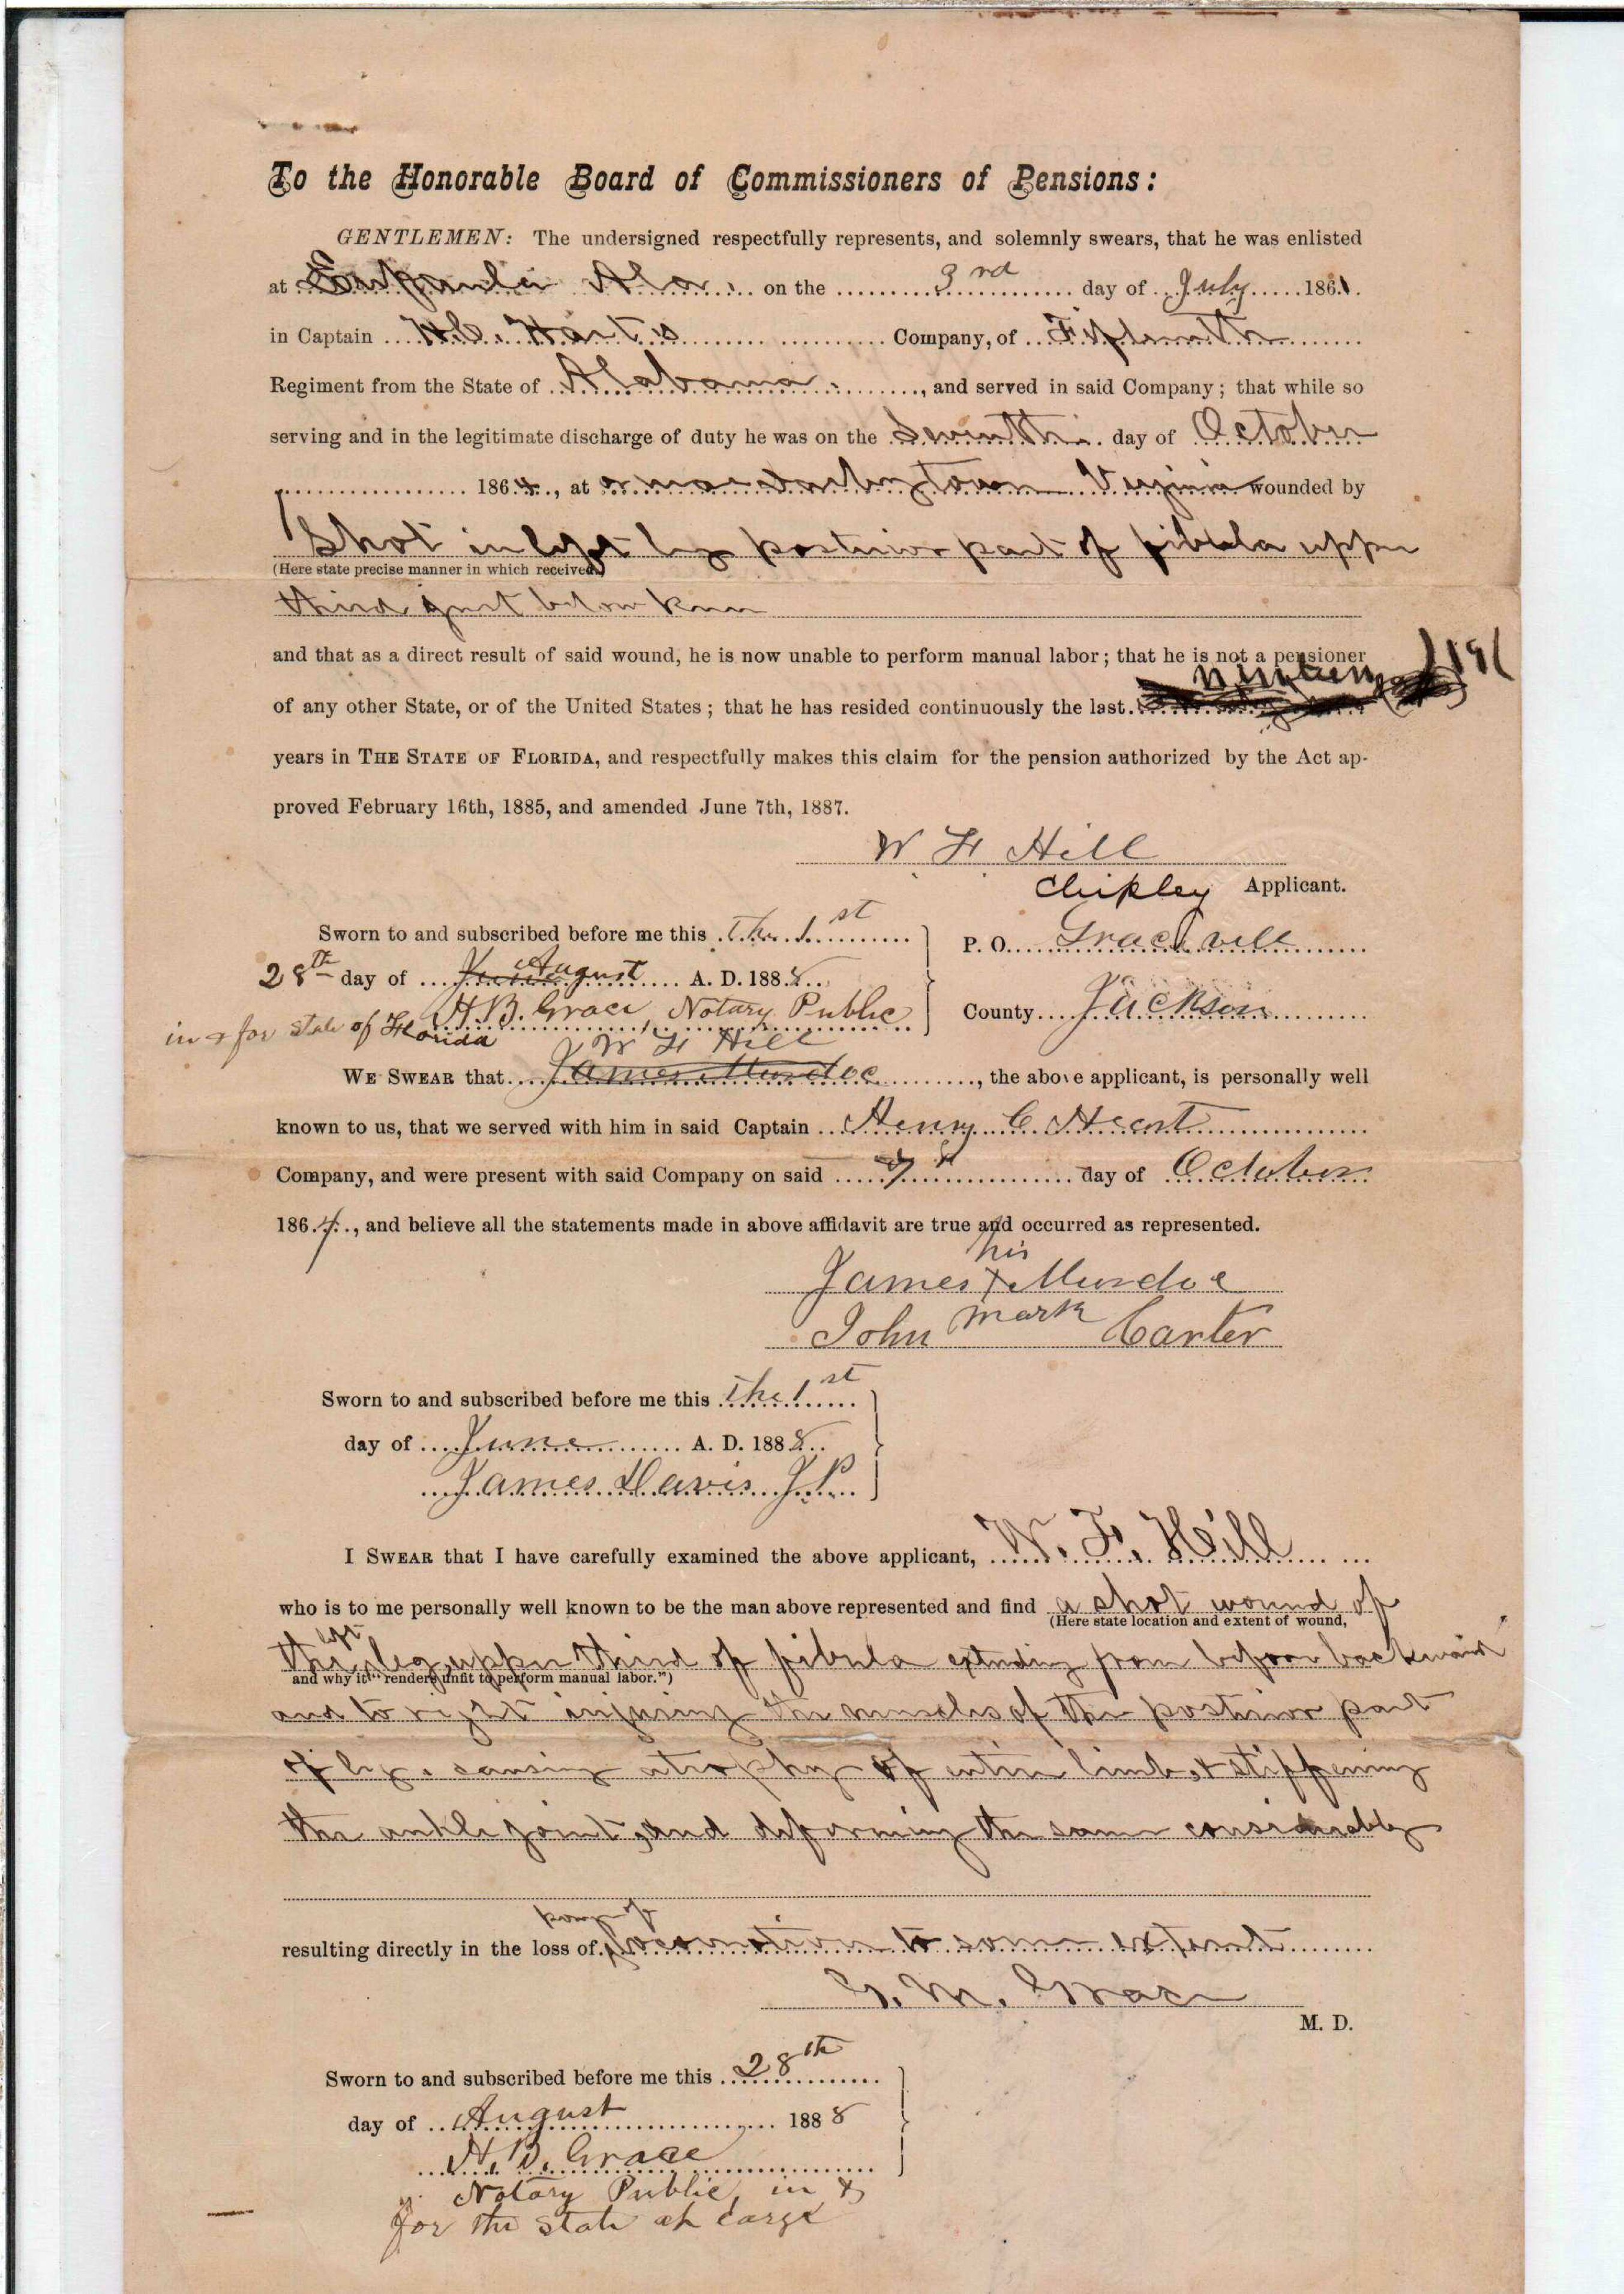 To the Honorable Board of Commissioners of Pensions:
GENTLEMEN: The undersigned respectfully represents, and solemnly swears, that he was enlisted
at Eufaula Ala. on the 3rd day of July 1861.
in Captain H.C. Hart's Company, of Fifteenth
Regiment from the State of Alabama, and served in said Company; that while so
serving and in the legitimate discharge of duty he was on the Seventh day of October
1864, at or near Darbytown Virginia wounded by
Shot in left leg posterior part of fibula upper
(Here state precise manner in which received.)
third just below knee
and that as a direct result of said wound, he is now unable to perform manual labor; that he is not a pensioner
nineteen (19)
of any other State, or of the United States; that he has resided continuously the last
years in THE STATE OF FLORIDA, and respectfully makes this claim for the pension authorized by the Act ap-
proved February 16th, 1885, and amended June 7th, 1887.
W F Hill
Chipley Applicant.
Sworn to and subscribed before me this the 1st
P. O. Graceville
28th day of June August A. D. 1888
County Jackson
H.B. Grace, Notary Public
in & for state of Florida
W F Hill
WE SWEAR that James Murdoc, the above applicant, is personally well
known to us, that we served with him in said Captain Henry C Heart
Company, and were present with said Company on said 7 day of October
1864, and believe all the statements made in above affidavit are true and occurred as represented.
his
James X Murdoc
mark
John Carter
Sworn to and subscribed before me this the 1st
day of June A. D. 1888
James Davis J.P.
I SWEAR that I have carefully examined the above applicant, W. F. Hill
who is to me personally well known to be the man above represented and find a shot wound of
(Here state location and extent of wound,
the left leg upper third of fibula extending from before backward
and why it "renders unfit to perform manual labor.")
and to right injuring the muscles of the posterior part
of leg. causing atrophy of entire limb, & stiffening
the ankle joint, and deforming the same considerably
power of
resulting directly in the loss of locomotion to some extent
G. M. Grace
M. D.
Sworn to and subscribed before me this 28th
day of August 1888
H. B. Grace
Notary Public, in &
for the state at large